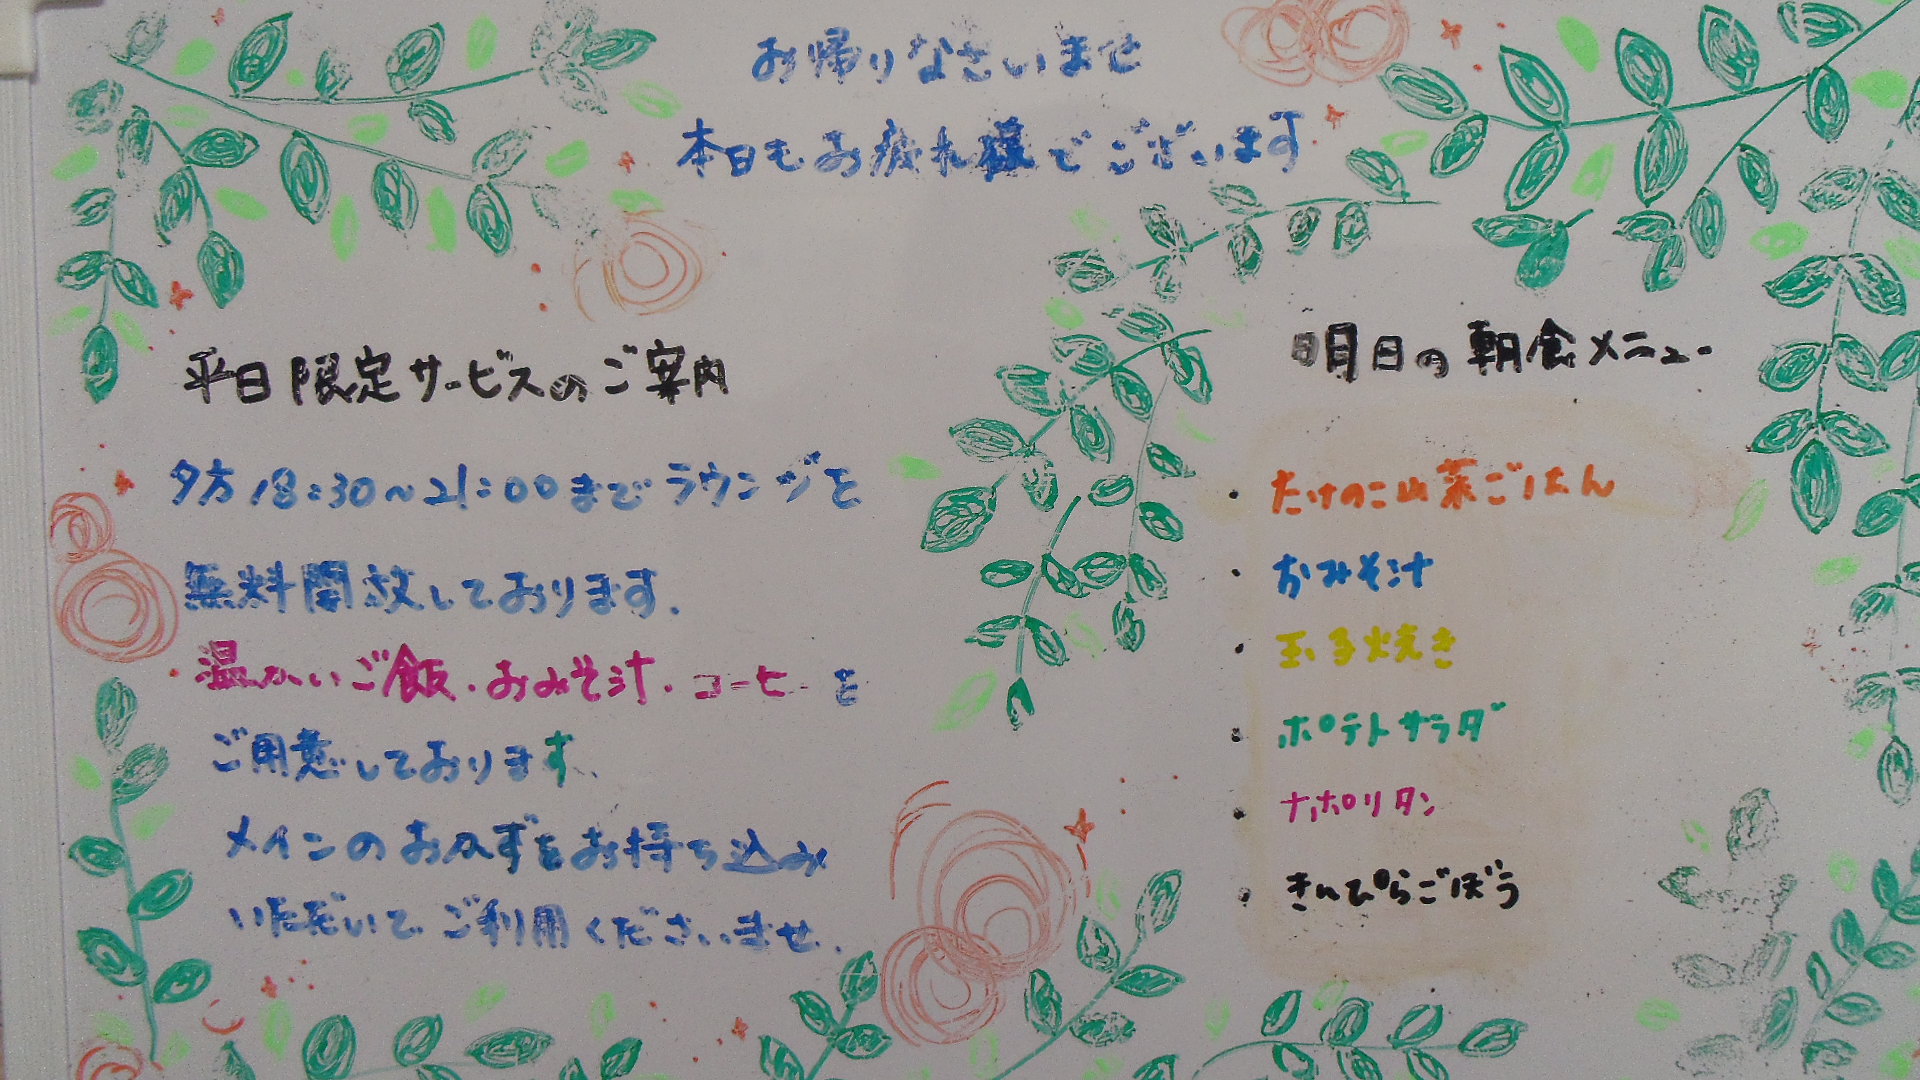 お帰りなさいませ
本日もお疲れ様でございます
平日限定サービスのご案内
夕方18:30~21:00までラウンジを
無料開放しております。
温かいご飯・おみそ汁・コーヒーを
ご用意しております。
メインのおかずをお持ち込み
いただいてご利用くださいませ。
明日の朝食メニュー
・たけのこ山菜ごはん
・おみそ汁
・玉子焼き
・ポテトサラダ
・ナポリタン
・きんぴらごぼう